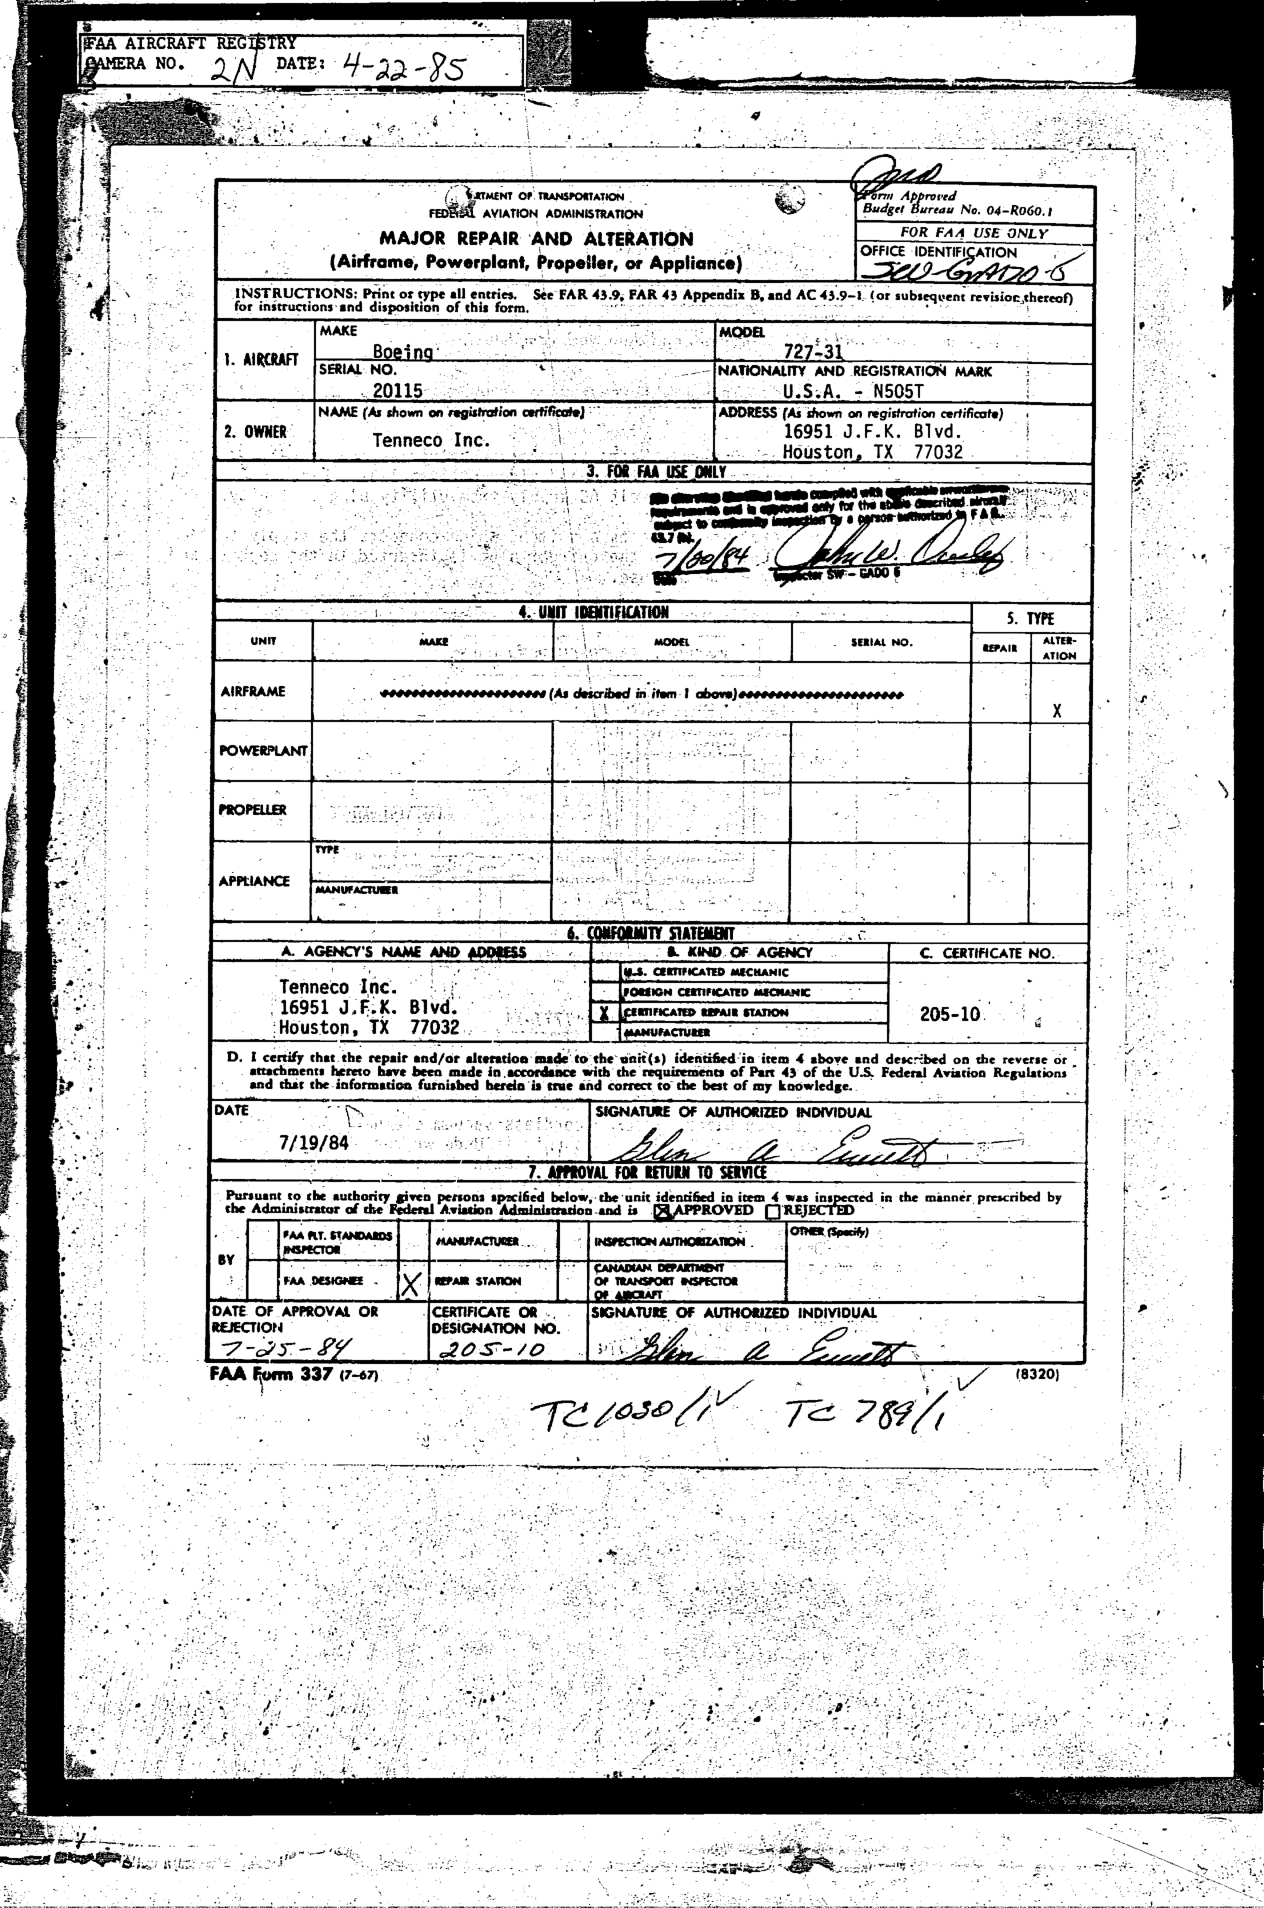 FAA AIRCRAFT REGISTRY
CAMERA NO. 2N DATE: 4-22-85
Form Approved
Budget Bureau No. 04-R060.1
FOR FAA USE ONLY
OFFICE IDENTIFICATION
SW-GADO-6
RTMENT OF TRANSPORTATION
FEDERAL AVIATION ADMINISTRATION
MAJOR REPAIR AND ALTERATION
(Airframe, Powerplant, Propeller, or Appliance)
INSTRUCTIONS: Print or type all entries. See FAR 43.9, FAR 43 Appendix B, and AC 43.9-1 (or subsequent revision thereof)
for instructions and disposition of this form.
1. AIRCRAFT
MAKE
Boeing
MODEL
727-31
SERIAL NO.
20115
NATIONALITY AND REGISTRATION MARK
U.S.A. - N505T
2. OWNER
NAME (As shown on registration certificate)
Tenneco Inc.
ADDRESS (As shown on registration certificate)
16951 J.F.K. Blvd.
Houston, TX 77032
3. FOR FAA USE ONLY
identified herein complied with applicable airworthiness
requirements and is approved only for the above described aircraft
subject to conformity inspection by a person authorized in F A R.
43.7
7/20/84 John W.
Date Inspector SW - GADO 6
4. UNIT IDENTIFICATION
5. TYPE
UNIT MAKE MODEL SERIAL NO. REPAIR ALTER-
ATION
AIRFRAME (As described in item 1 above) X
POWERPLANT
PROPELLER
APPLIANCE
TYPE
MANUFACTURER
6. CONFORMITY STATEMENT
A. AGENCY'S NAME AND ADDRESS B. KIND OF AGENCY C. CERTIFICATE NO.
Tenneco Inc.
16951 J.F.K. Blvd.
Houston, TX 77032
U.S. CERTIFICATED MECHANIC
FOREIGN CERTIFICATED MECHANIC
X CERTIFICATED REPAIR STATION
MANUFACTURER
205-10
D. I certify that the repair and/or alteration made to the unit(s) identified in item 4 above and described on the reverse or
attachments hereto have been made in accordance with the requirements of Part 43 of the U.S. Federal Aviation Regulations
and that the information furnished herein is true and correct to the best of my knowledge.
DATE
7/19/84
SIGNATURE OF AUTHORIZED INDIVIDUAL
Glen A Emmett
7. APPROVAL FOR RETURN TO SERVICE
Pursuant to the authority given persons specified below, the unit identified in item 4 was inspected in the manner prescribed by
the Administrator of the Federal Aviation Administration and is X APPROVED REJECTED
BY
FAA FLT. STANDARDS
INSPECTOR
MANUFACTURER
INSPECTION AUTHORIZATION
OTHER (Specify)
FAA DESIGNEE
X REPAIR STATION
CANADIAN DEPARTMENT
OF TRANSPORT INSPECTOR
OF AIRCRAFT
DATE OF APPROVAL OR
REJECTION
7-25-84
CERTIFICATE OR
DESIGNATION NO.
205-10
SIGNATURE OF AUTHORIZED INDIVIDUAL
Glen A Emmett
FAA Form 337 (7-67) (8320)
TC1030/1 TC 789/1